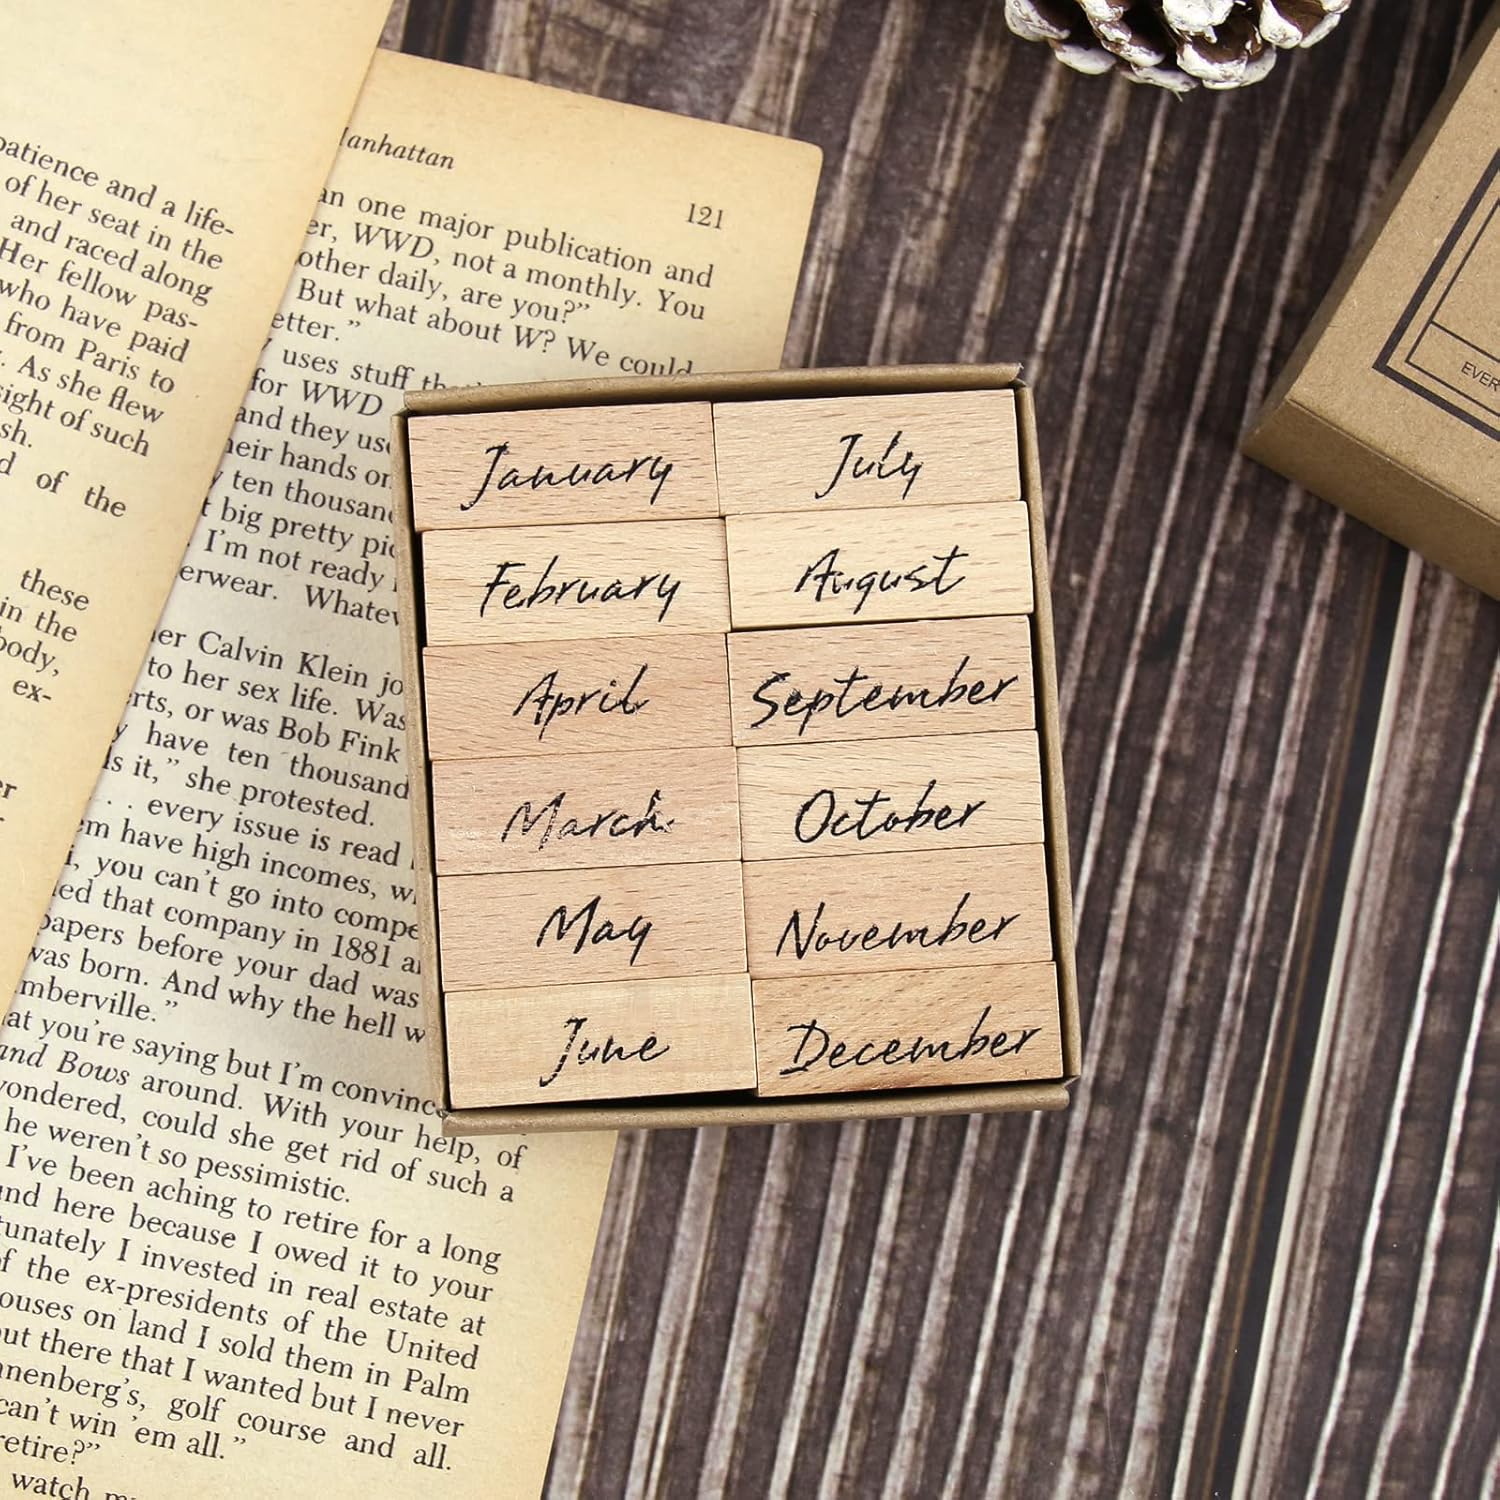 patience and a life-
of her seat in the
and raced along
Her fellow pas-
who have paid
from Paris to
. As she flew
sight of such
sh.
d of the
these
in the
body,
ex-
er
Manhattan
121
an one major publication and
er, WWD, not a monthly. You
other daily, are you?"
But what about W? We could
etter."
uses stuff
for WWD
and they use
heir hands on
ten thousand
t big pretty pic
I'm not ready
erwear. Whatev
er Calvin Klein jo
to her sex life. Was
rts, or was Bob Fink
y have ten thousand
ls it," she protested.
. . . every issue is read
em have high incomes, w
i, you can't go into compe
ed that company in 1881 a
papers before your dad was
was born. And why the hell w
mberville."
at you're saying but I'm convince
and Bows around. With your help, of
wondered, could she get rid of such a
he weren't so pessimistic.
I've been aching to retire for a long
and here because I owed it to your
tunately I invested in real estate at
of the ex-presidents of the United
ouses on land I sold them in Palm
out there that I wanted but I never
nnenberg's, golf course and all.
can't win 'em all."
retire?"
watch
January
February
April
March
May
June
July
August
September
October
November
December
EVER